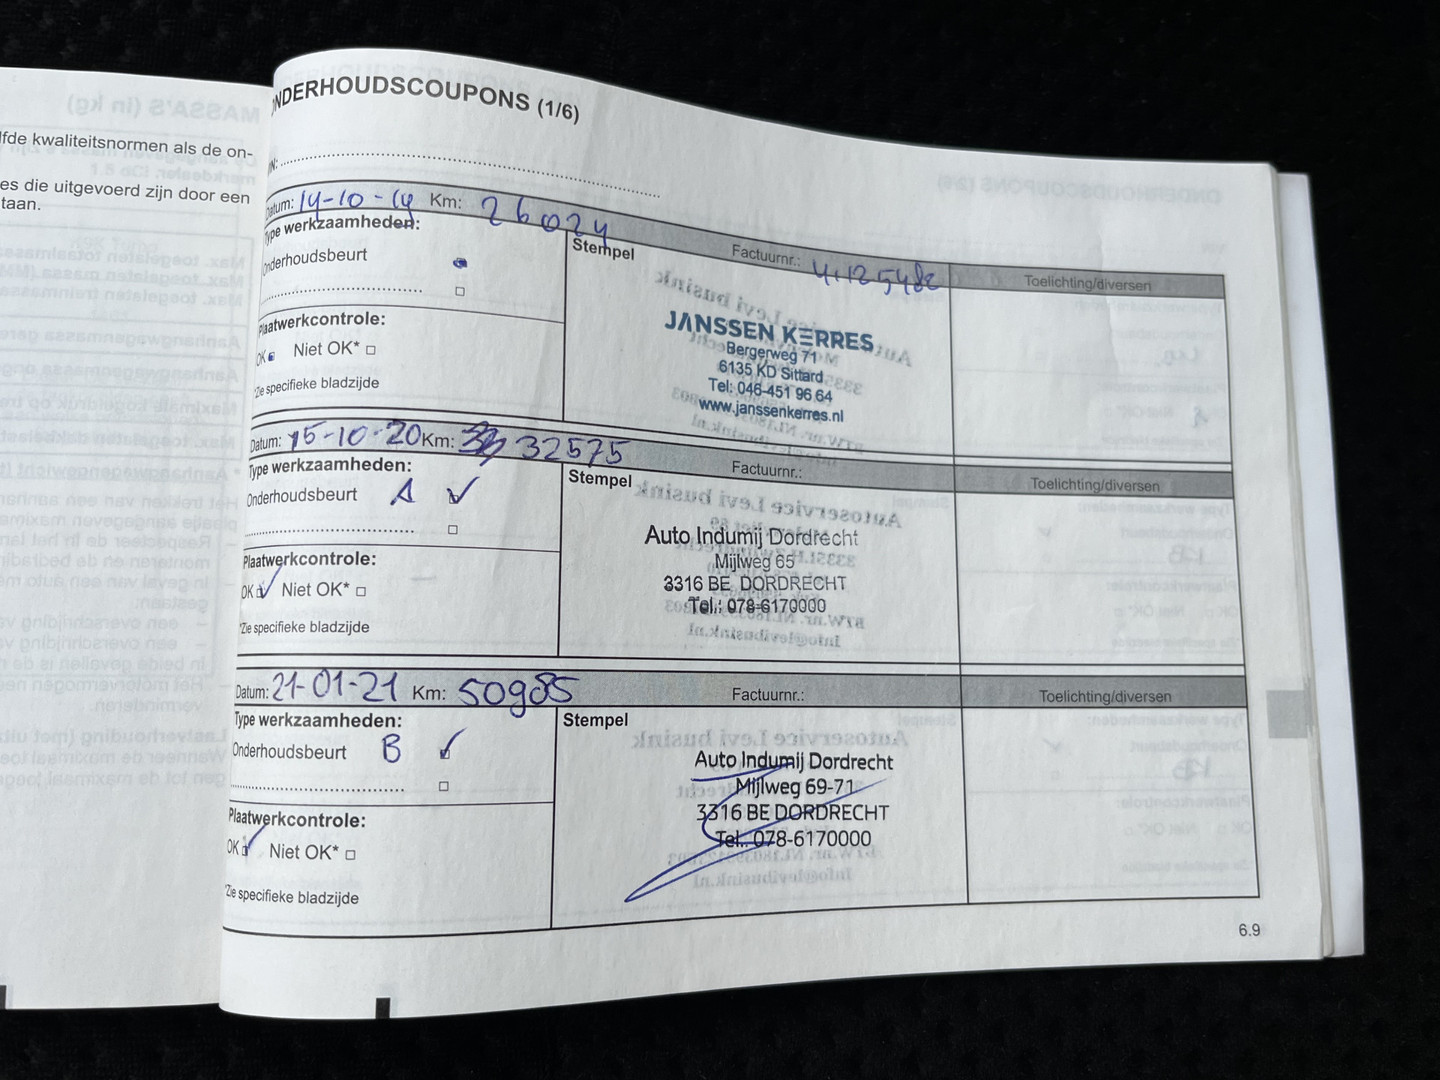 lfde kwaliteitsnormen als de on-
es die uitgevoerd zijn door een
taan.
MASSA'S (in kg)
NDERHOUDSCOUPONS (1/6)
IN:
Datum: 14-10-19 Km: 26024 Factuurnr.: Toelichting/diversen
Type werkzaamheden: Stempel
Onderhoudsbeurt
Plaatwerkcontrole:
OK Niet OK* □
*Zie specifieke bladzijde
JANSSEN KERRES
Bergerweg 71
6135 KD Sittard
Tel: 046-451 96 64
www.janssenkerres.nl
Datum: 15-10-20 Km: 32575 Factuurnr.: Toelichting/diversen
Type werkzaamheden: Stempel
Onderhoudsbeurt A
Plaatwerkcontrole:
OK Niet OK* □
*Zie specifieke bladzijde
Auto Indumij Dordrecht
Mijlweg 65
3316 BE DORDRECHT
Tel.: 078-6170000
Datum: 21-01-21 Km: 50985 Factuurnr.: Toelichting/diversen
Type werkzaamheden: Stempel
Onderhoudsbeurt B
Plaatwerkcontrole:
OK Niet OK* □
*Zie specifieke bladzijde
Auto Indumij Dordrecht
Mijlweg 69-71
3316 BE DORDRECHT
Tel.: 078-6170000
6.9